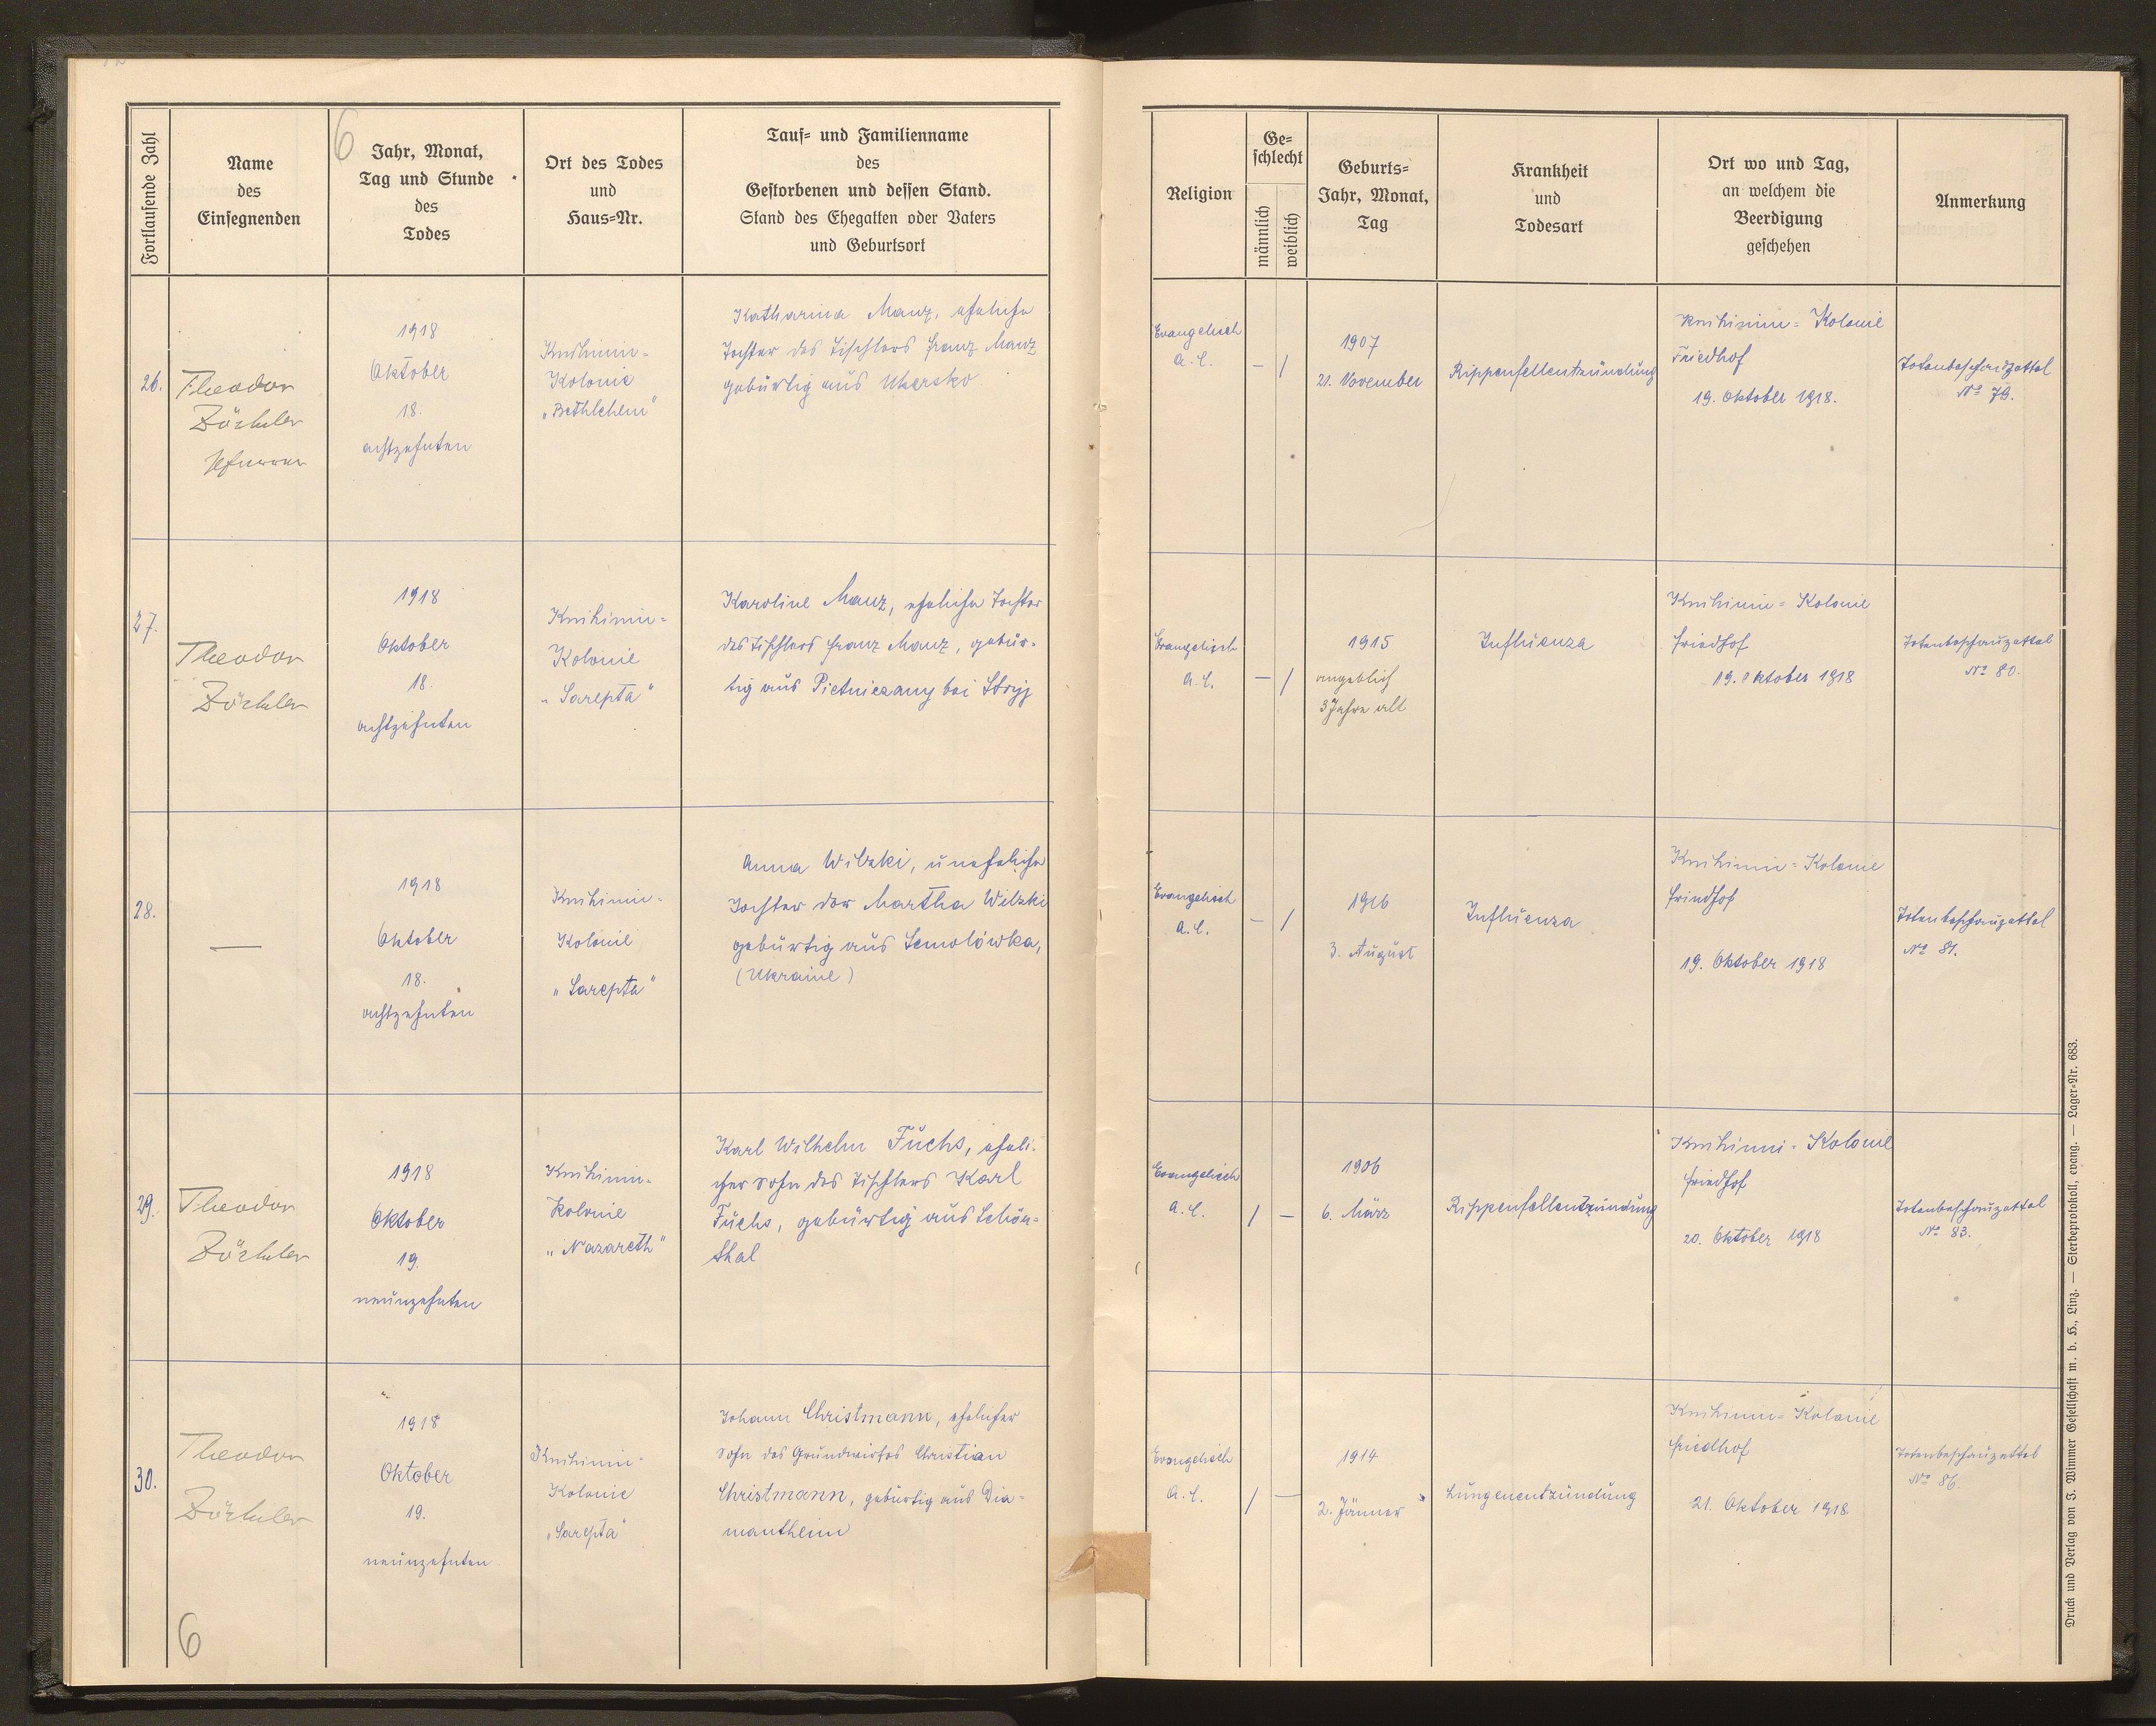 6
Fortlaufende Zahl
Name
des
Einsegnenden
Jahr, Monat,
Tag und Stunde
des
Todes
Ort des Todes
und
Haus=Nr.
Tauf= und Familienname
des
Gestorbenen und dessen Stand.
Stand des Ehegatten oder Vaters
und Geburtsort
Religion
Ge=
schlecht
männlich
weiblich
Geburts=
Jahr, Monat,
Tag
Krankheit
und
Todesart
Ort wo und Tag,
an welchem die
Beerdigung
geschehen
Anmerkung
26.
Theodor
Zöckler
Pfarrer
1918
Oktober
18.
achtzehnten
Knihinin-
Kolonie
„Bethlehem"
Katharina Manz, eheliche
Tochter des Tischlers Franz Manz
gebürtig aus Ukersko
Evangelisch
A.C.
— /
1907
21. November
Rippenfellentzündung
Knihinin=Kolonie
Friedhof
19. Oktober 1918.
Totenbeschauzettel
No 79.
27.
Theodor
Zöckler
1918
Oktober
18.
achtzehnten
Knihinin=
Kolonie
„Sarepta"
Karoline Manz, eheliche Tochter
des Tischlers Franz Manz, gebür-
tig aus Pietniczany bei Stryj
Evangelisch
A.C.
— /
1915
angeblich
3 Jahre alt
Influenza
Knihinin=Kolonie
Friedhof
19. Oktober 1918
Totenbeschauzettel
No 80.
28.
—
1918
Oktober
18.
achtzehnten
Knihinin-
Kolonie
„Sarepta"
Anna Wilzki, uneheliche
Tochter der Martha Wilzki
gebürtig aus Semolówka,
(Ukraine)
Evangelisch
A.C.
— /
1916
3. August
Influenza
Knihinin=Kolonie
Friedhof
19. Oktober 1918
Totenbeschauzettel
No 81.
29.
Theodor
Zöckler
1918
Oktober
19.
neunzehnten
Knihinin-
Kolonie
„Nazareth"
Karl Wilhelm Fuchs, eheli-
cher Sohn des Tischlers Karl
Fuchs, gebürtig aus Schön=
thal
Evangelisch
A.C.
/ —
1906
6. März
Rippenfellentzündung
Knihinin-Kolonie
Friedhof
20. Oktober 1918
Totenbeschauzettel
No 83.
30.
Theodor
Zöckler
1918
Oktober
19.
neunzehnten
Knihinin-
Kolonie
„Sarepta"
Johann Christmann, ehelicher
Sohn des Grundwirtes Christian
Christmann, gebürtig aus Dia=
mantheim
Evangelisch
A.C.
/ —
1914
2. Jänner
Lungenentzündung
Knihinin=Kolonie
Friedhof
21. Oktober 1918.
Totenbeschauzettel
No 86.
6
Druck und Verlag von J. Wimmer Gesellschaft m. b. H., Linz. — Sterbeprotokoll, evang. — Lager=Nr. 683.